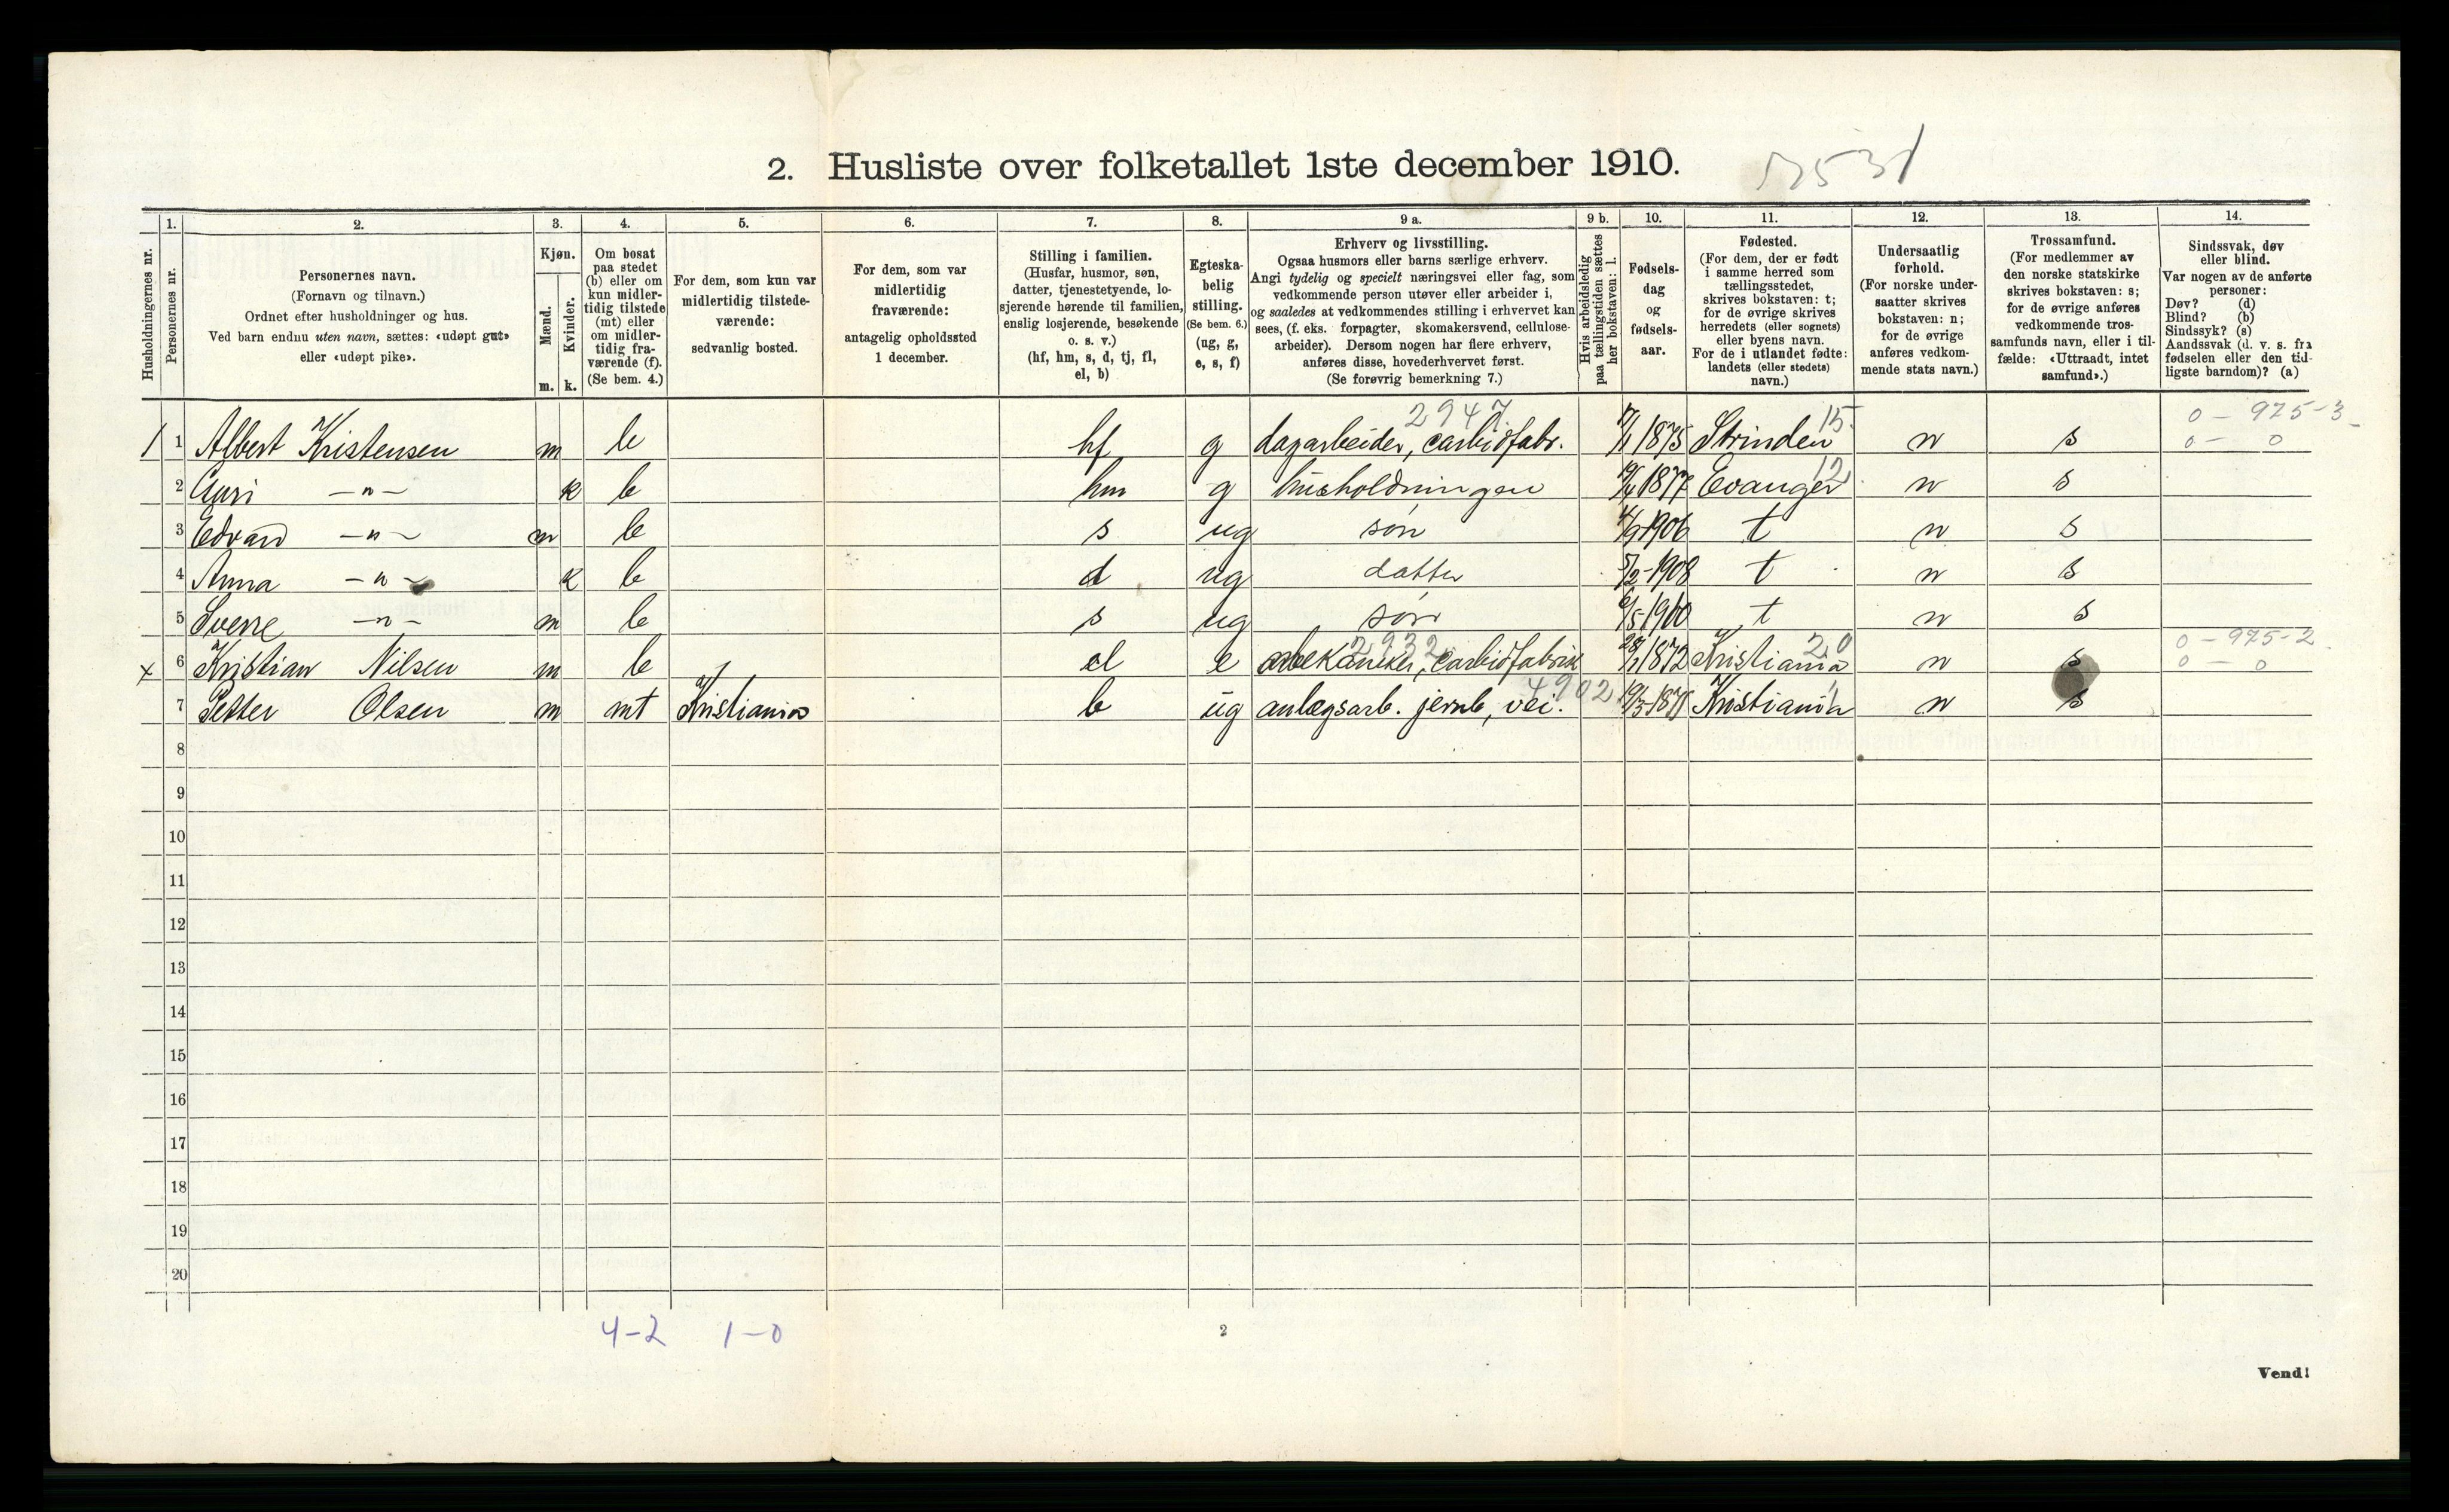 2. Husliste over folketallet 1ste december 1910.
1. 2. 3. 4. 5. 6. 7. 8. 9 a. 9 b. 10. 11. 12. 13. 14.
Husholdningernes nr.
Personernes nr.
Personernes navn.
(Fornavn og tilnavn.)
Ordnet efter husholdninger og hus.
Ved barn endnu uten navn, sættes: «udøpt gut»
eller «udøpt pike».
Kjøn.
Mænd.
Kvinder.
m. k.
Om bosat
paa stedet
(b) eller om
kun midler-
tidig tilstede
(mt) eller
om midler-
tidig fra-
værende (f).
(Se bem. 4.)
For dem, som kun var
midlertidig tilstede-
værende:
sedvanlig bosted.
For dem, som var
midlertidig
fraværende:
antagelig opholdssted
1 december.
Stilling i familien.
(Husfar, husmor, søn,
datter, tjenestetyende, lo-
sjerende hørende til familien,
enslig losjerende, besøkende
o. s. v.)
(hf, hm, s, d, tj, fl,
el, b)
Egteska-
belig
stilling.
(Se bem. 6.)
(ug, g,
e, s, f)
Erhverv og livsstilling.
Ogsaa husmors eller barns særlige erhverv.
Angi tydelig og specielt næringsvei eller fag, som
vedkommende person utøver eller arbeider i,
og saaledes at vedkommendes stilling i erhvervet kan
sees, (f. eks. forpagter, skomakersvend, cellulose-
arbeider). Dersom nogen har flere erhverv,
anføres disse, hovederhvervet først.
(Se forøvrig bemerkning 7.)
Hvis arbeidsledig
paa tællingstiden sættes
her bokstaven: l.
Fødsels-
dag
og
fødsels-
aar.
Fødested.
(For dem, der er født
i samme herred som
tællingsstedet,
skrives bokstaven: t;
for de øvrige skrives
herredets (eller sognets)
eller byens navn.
For de i utlandet fødte:
landets (eller stedets)
navn.)
Undersaatlig
forhold.
(For norske under-
saatter skrives
bokstaven: n;
for de øvrige
anføres vedkom-
mende stats navn.)
Trossamfund.
(For medlemmer av
den norske statskirke
skrives bokstaven: s;
for de øvrige anføres
vedkommende tros-
samfunds navn, eller i til-
fælde: «Uttraadt, intet
samfund».)
Sindssvak, døv
eller blind.
Var nogen av de anførte
personer:
Døv? (d)
Blind? (b)
Sindssyk? (s)
Aandssvak (d. v. s. fra
fødselen eller den tid-
ligste barndom)? (a)
2947 15 0 - 925-3
1 1 Albert Kristensen m b hf g dagarbeider, carbidfabr. 1875 Strinden n s 0 - 0
2 Guri -"- k b hm g husholdningen 1877 Evanger 12 n s
3 Edvard -"- m b s ug søn 1906 t n s
4 Anna -"- k b d ug datter 5/2-1908 t n s
5 Sverre -"- m b s ug søn 6/5-1910 t n s
2932 20 0 - 925-2
x 6 Kristian Nilsen m b el e carbidfabrik 1872 Kristiania n s 0 - 0
4902
7 Petter Olsen m mt Kristiania b ug anlægsarb. jernb, vei. Kristiania n s
8
9
10
11
12
13
14
15
16
17
18
19
20
4-2 1-0
2
Vend!